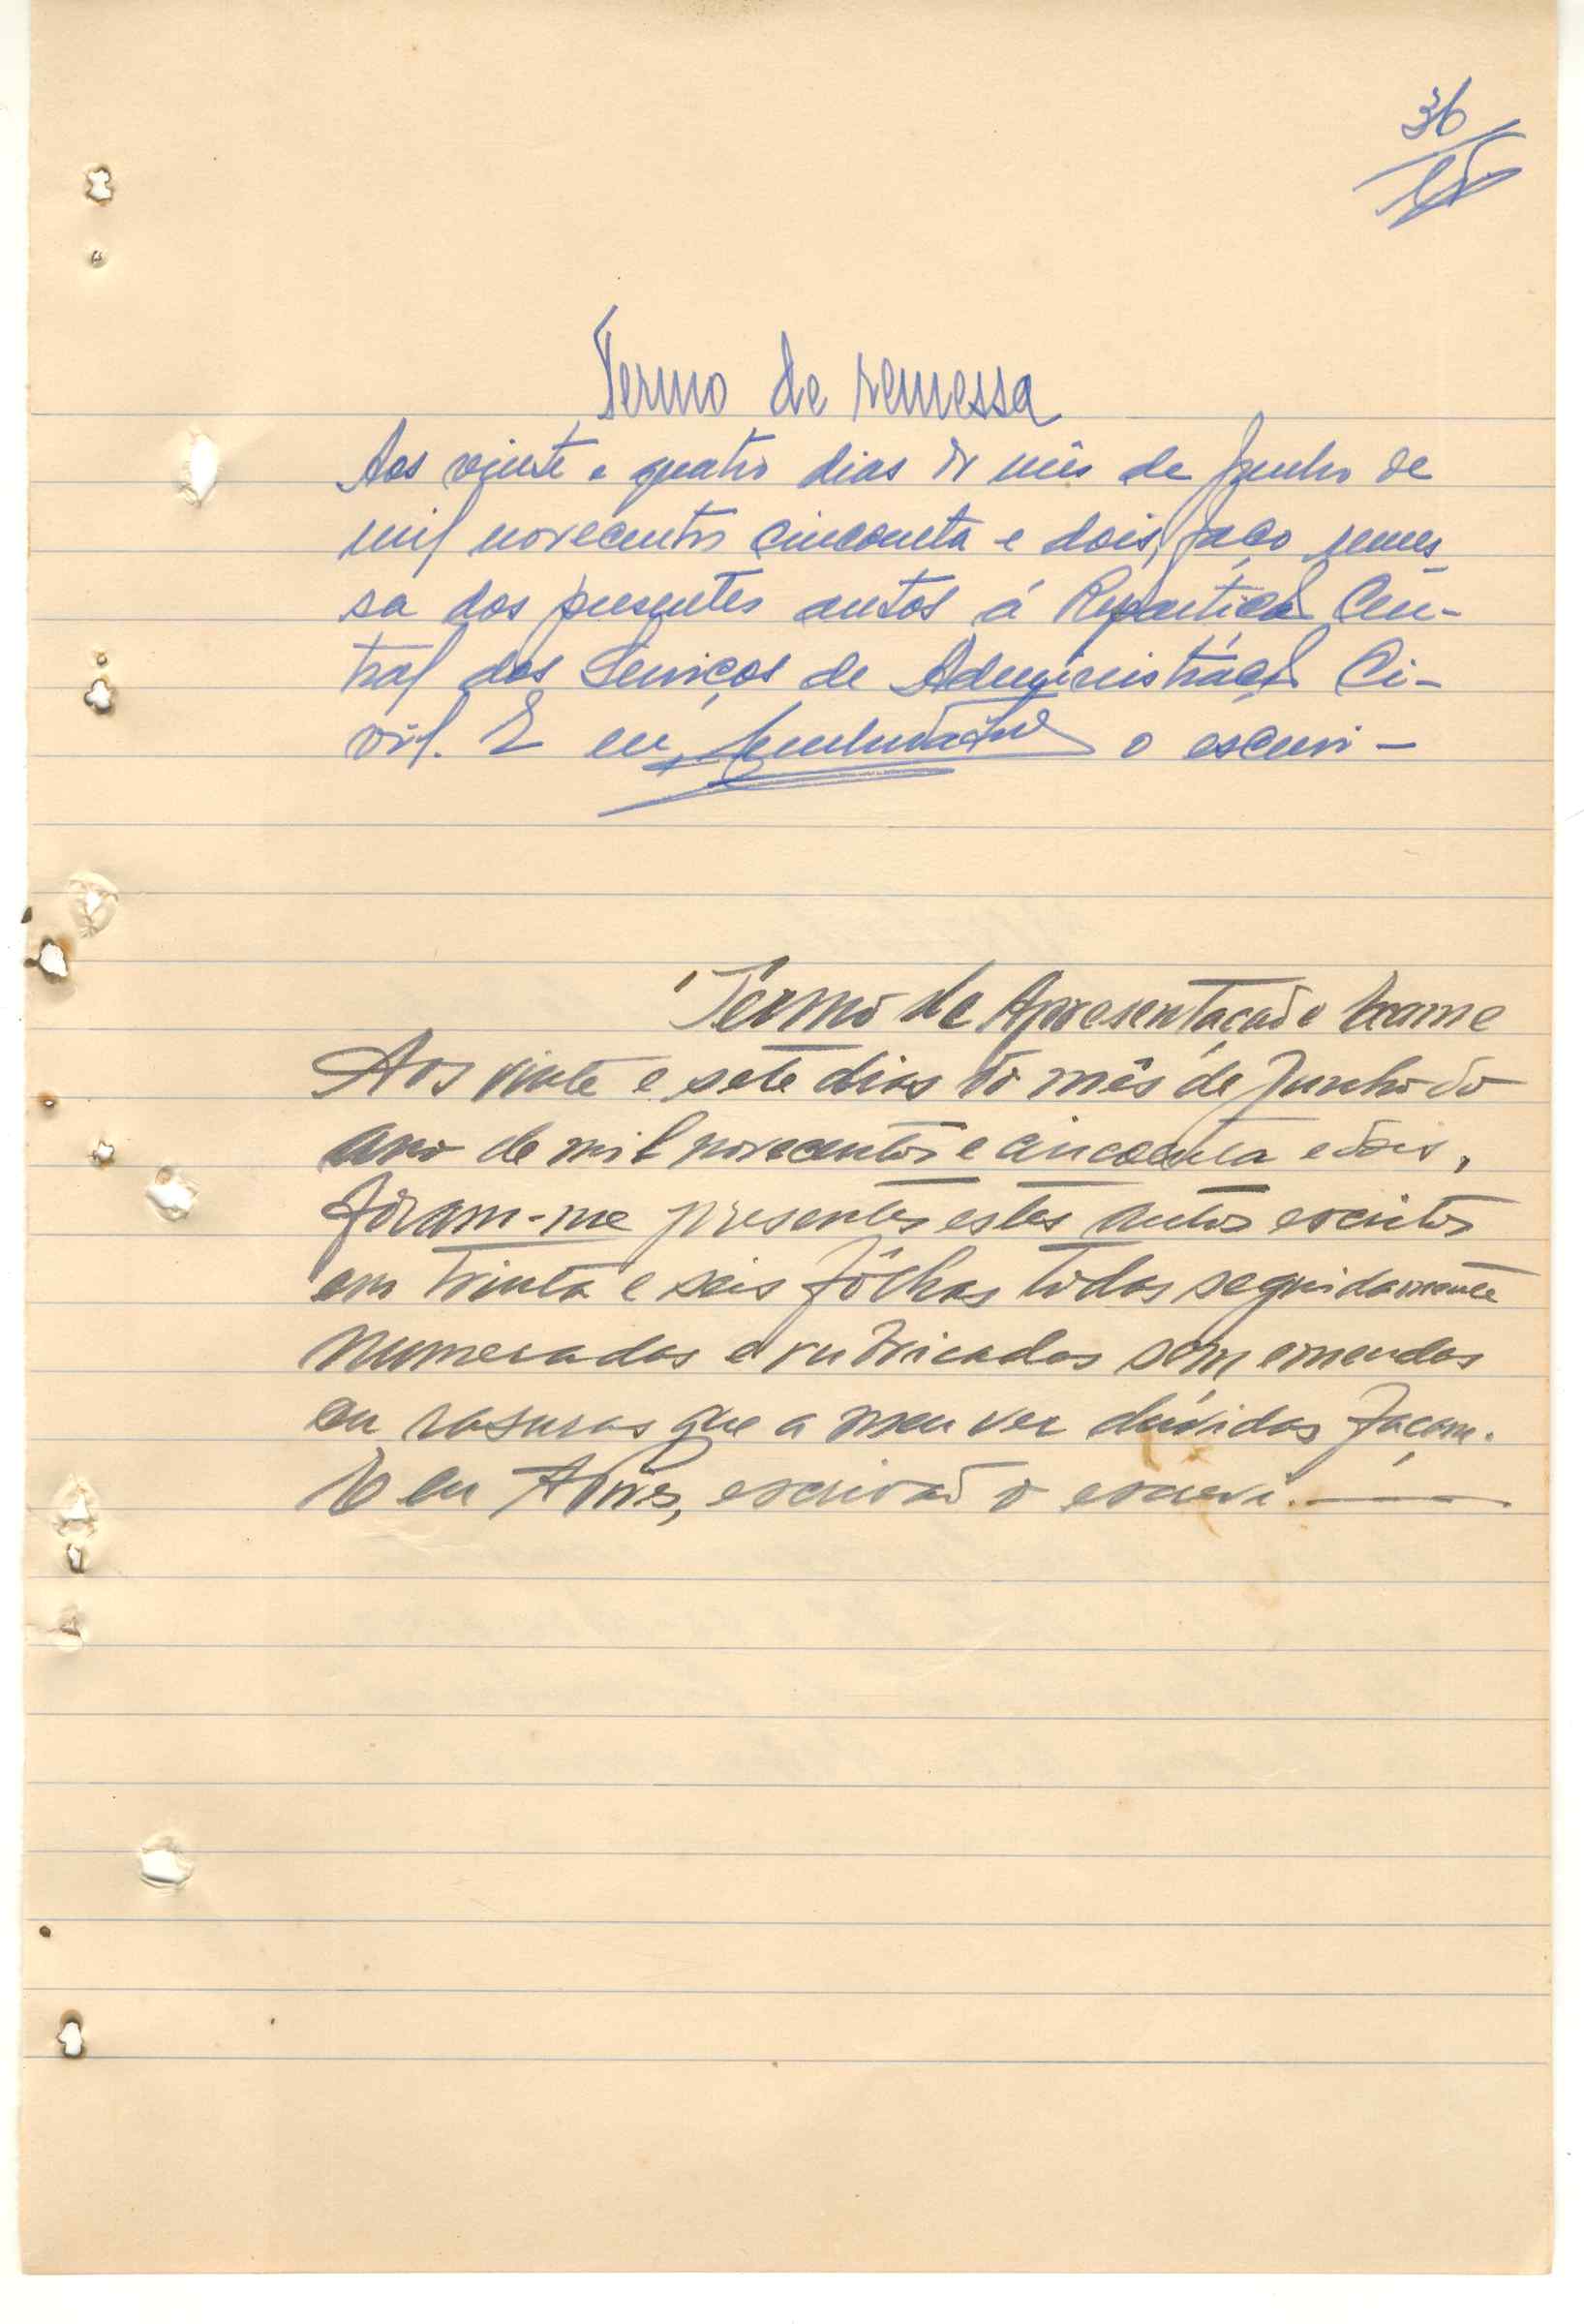 36
Termo de remessa
Aos vinte e quatro dias do mês de Junho de
mil novecentos cincoenta e dois, faço remes-
sa dos presentes autos á Repartição Cen-
tral dos Serviços de Administração Ci-
vil. E eu, o escrevi -
Termo de Apresentação e Exame
Aos vinte e sete dias do mês de Junho do
ano de mil novecentos e cincoenta e dois,
fôram-me presentes estes autos escritos
em trinta e seis fôlhas todas seguidamente
numeradas e rubricadas sem emendas
ou rasuras que a meu ver dúvidas façam.
E eu escrivão o escrevi.